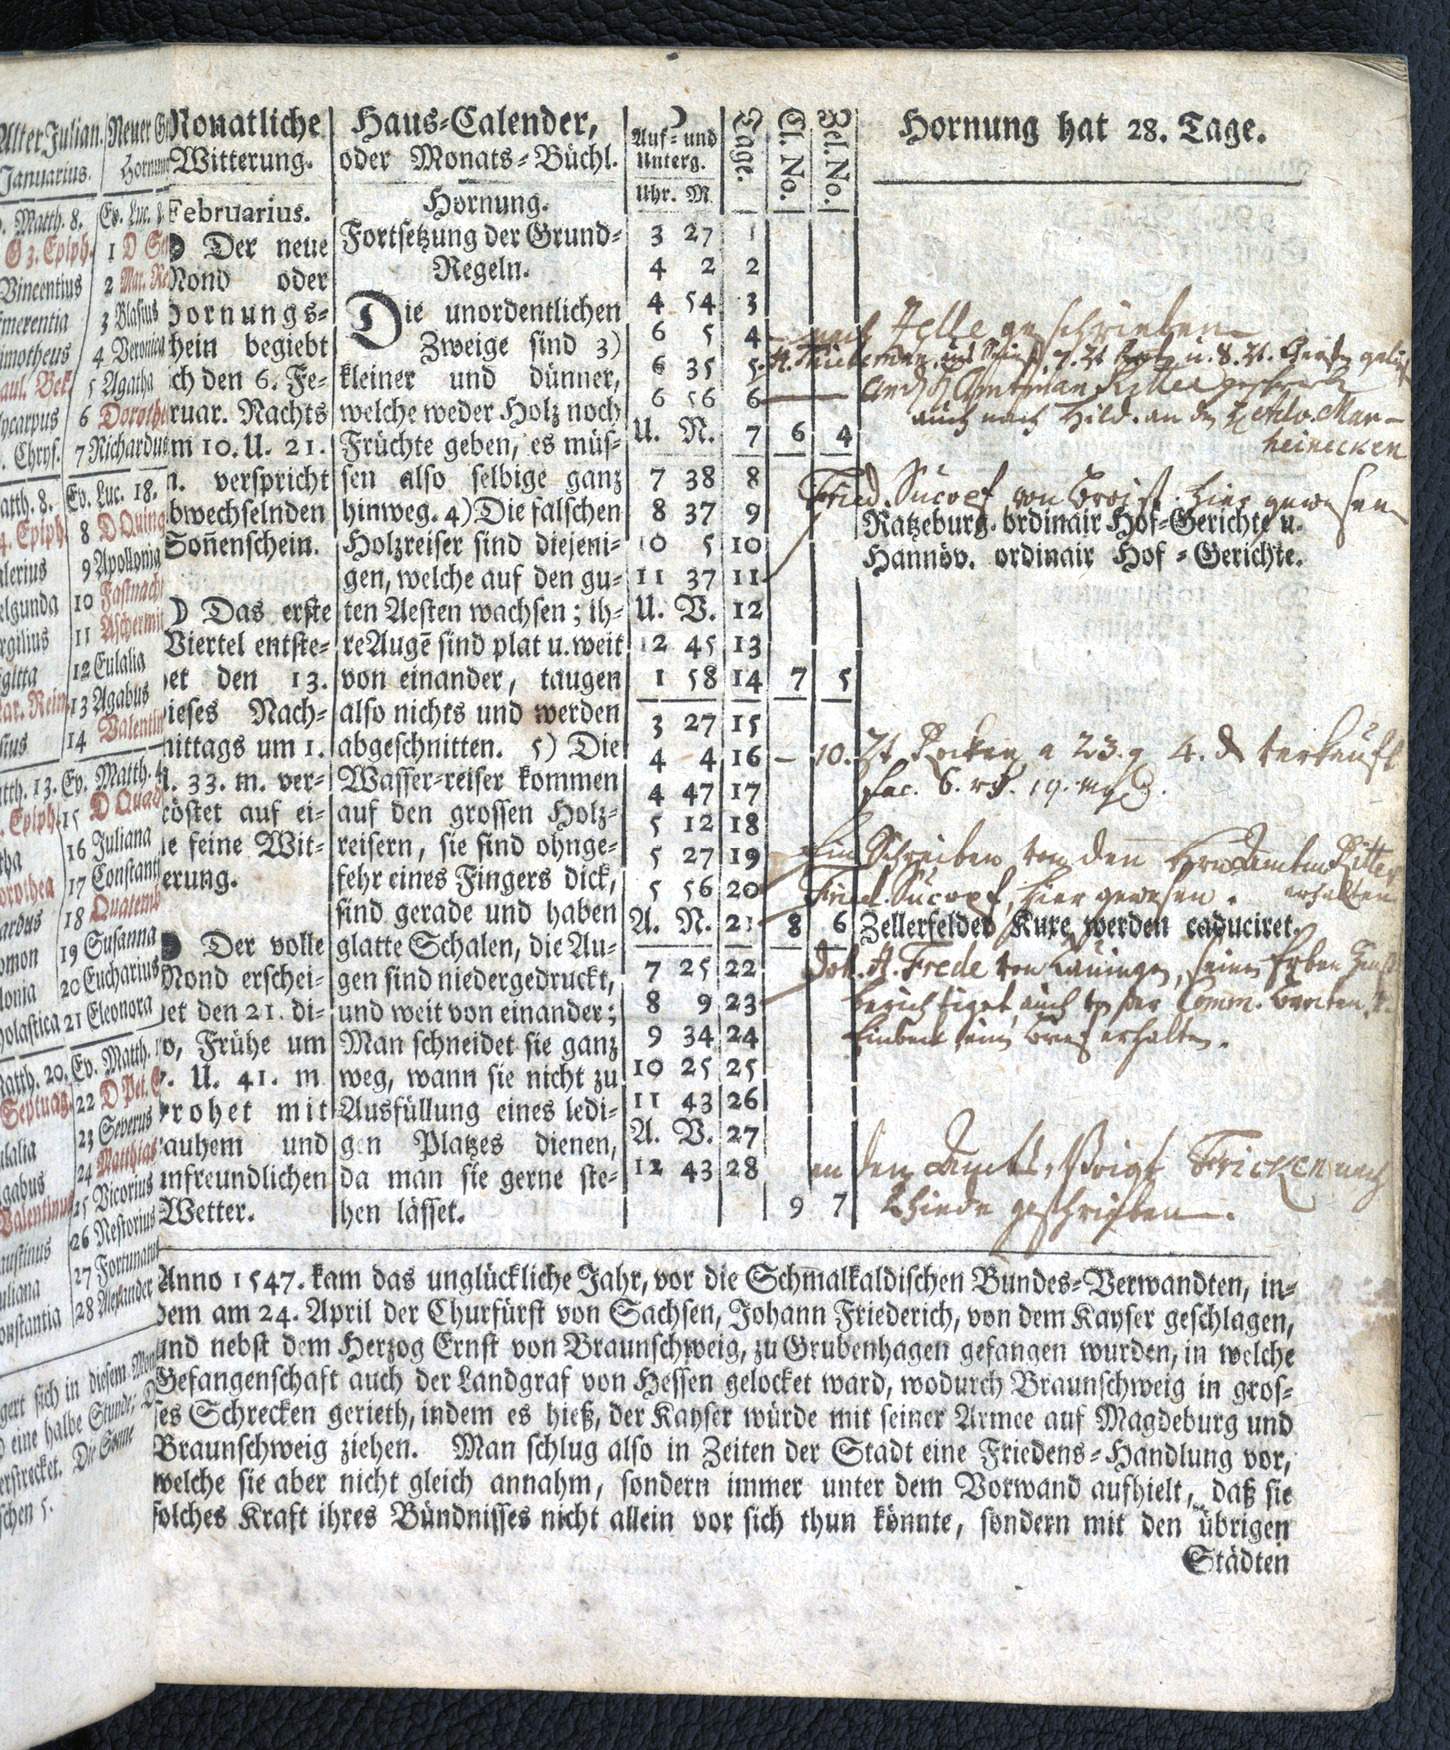 Alter Julian.
Januarius.
Matth. 8.
G 3. Epiph.
Vincentius
Emerentia
Timotheus
Paul. Bek.
Polycarpus
Chrys.
Matth. 8.
4. Epiph.
Valerius
Adelgunda
Virgilius
Brigitta
Mar. Rein.
14
Matth. 13.
Epiph.
Agatha
Dorothea
Richardus
Salomon
Apollonia
Scholastica
Matth. 20.
Septuag.
Eulalia
Agabus
Valentinus
Faustinus
Juliana
Constantia
gert sich in diesem
eine halbe Stunde;
erstrecket. Die Sonne
schen 5.
Neuer
Hornung
Ev. Luc. 8.
1 D
2 Mar. Re
3 Blasius
4 Veronica
5 Agatha
6 Dorothe
7 Richardus
Ev. Luc. 18.
8 D Quing
9 Apollonia
10 Fastnach
11 Aschermit
12 Eulalia
13 Agabus
14 Valentin
Ev. Matth. 4
15 D Quad
16 Juliana
17 Constant
18 Quatemb
19 Susanna
20 Eucharius
21 Eleonora
Ev. Matth.
22 D Pet.
23 Severus
24 Matthias
25 Victorius
26 Nestorius
27 Fortunatu
28 Alexander
Monatliche
Witterung.
Februarius.
Der neue
Mond oder
Hornungs-
schein begiebt
sich den 6. Fe-
bruar. Nachts
um 10. U. 21.
m. verspricht
abwechselnden
Soñenschein.
Das erste
Viertel entste-
het den 13.
dieses Nach-
mittags um 1.
U. 33. m. ver-
tröstet auf ei-
ne feine Wit-
terung.
Der volle
Mond erschei-
net den 21. di-
to, Frühe um
U. 41. m.
drohet mit
rauhem und
unfreundlichen
Wetter.
Haus-Calender,
oder Monats-Büchl.
Hornung.
Fortsetzung der Grund-
Regeln.
Die unordentlichen
Zweige sind 3)
kleiner und dünner,
welche weder Holz noch
Früchte geben, es müs-
sen also selbige ganz
hinweg. 4) Die falschen
Holzreiser sind diejeni-
gen, welche auf den gu-
ten Aesten wachsen; ih-
re Augẽ sind plat u. weit
von einander, taugen
also nichts und werden
abgeschnitten. 5) Die
Wasser-reiser kommen
auf den grossen Holz-
reisern, sie sind ohnge-
fehr eines Fingers dick,
sind gerade und haben
glatte Schalen, die Au-
gen sind niedergedruckt,
und weit von einander;
Man schneidet sie ganz
weg, wann sie nicht zu
Ausfüllung eines ledi-
gen Platzes dienen,
da man sie gerne ste-
hen lässet.
Auf- und
Unterg.
Uhr. M. Tage. Cl. No. Zel. No.
3 27 1
4 2 2
4 54 3
6 5 4
6 35 5
6 56 6
U. N. 7 6 4
7 38 8
8 37 9
10 5 10
11 37 11
U. V. 12
12 45 13
1 58 14 7 5
3 27 15
4 4 16
4 47 17
5 12 18
5 27 19
5 56 20
A. N. 21 8 6
7 25 22
8 9 23
9 34 24
10 25 25
11 43 26
A. V. 27
12 43 28
9 7
Hornung hat 28. Tage.
nach Zelle geschrieben
H. Thieleman
H Amtman Ritter
auch nach Hild. an
heinecken
Fried. Sucopf von hier gewesen
Ratzeburg. ordinair Hof-Gerichte u.
Hannöv. ordinair Hof-Gerichte.
10. Rocken a 23. g 4. verkauft
fac. 6. 19. mg
Ein Schreiben von den Ritter
erhalten
Fried. Sucopf, hier gewesen.
Zellerfelder Kuxe werden caduciret.
Joh. H. Frede von Lauingen, seine
berichtiget auch Comm.
Einbeck ein Brief erhalten.
an den Amts Voigt Fricken nach
geschrieben.
Anno 1547. kam das unglückliche Jahr, vor die Schmalkaldischen Bundes-Verwandten, in-
dem am 24. April der Churfürst von Sachsen, Johann Friederich, von dem Kayser geschlagen,
und nebst dem Herzog Ernst von Braunschweig, zu Grubenhagen gefangen wurden, in welche
Gefangenschaft auch der Landgraf von Hessen gelocket ward, wodurch Braunschweig in gros-
ses Schrecken gerieth, indem es hieß, der Kayser würde mit seiner Armee auf Magdeburg und
Braunschweig ziehen. Man schlug also in Zeiten der Stadt eine Friedens-Handlung vor,
welche sie aber nicht gleich annahm, sondern immer unter dem Vorwand aufhielt, daß sie
solches Kraft ihres Bündnisses nicht allein vor sich thun könnte, sondern mit den übrigen
Städten